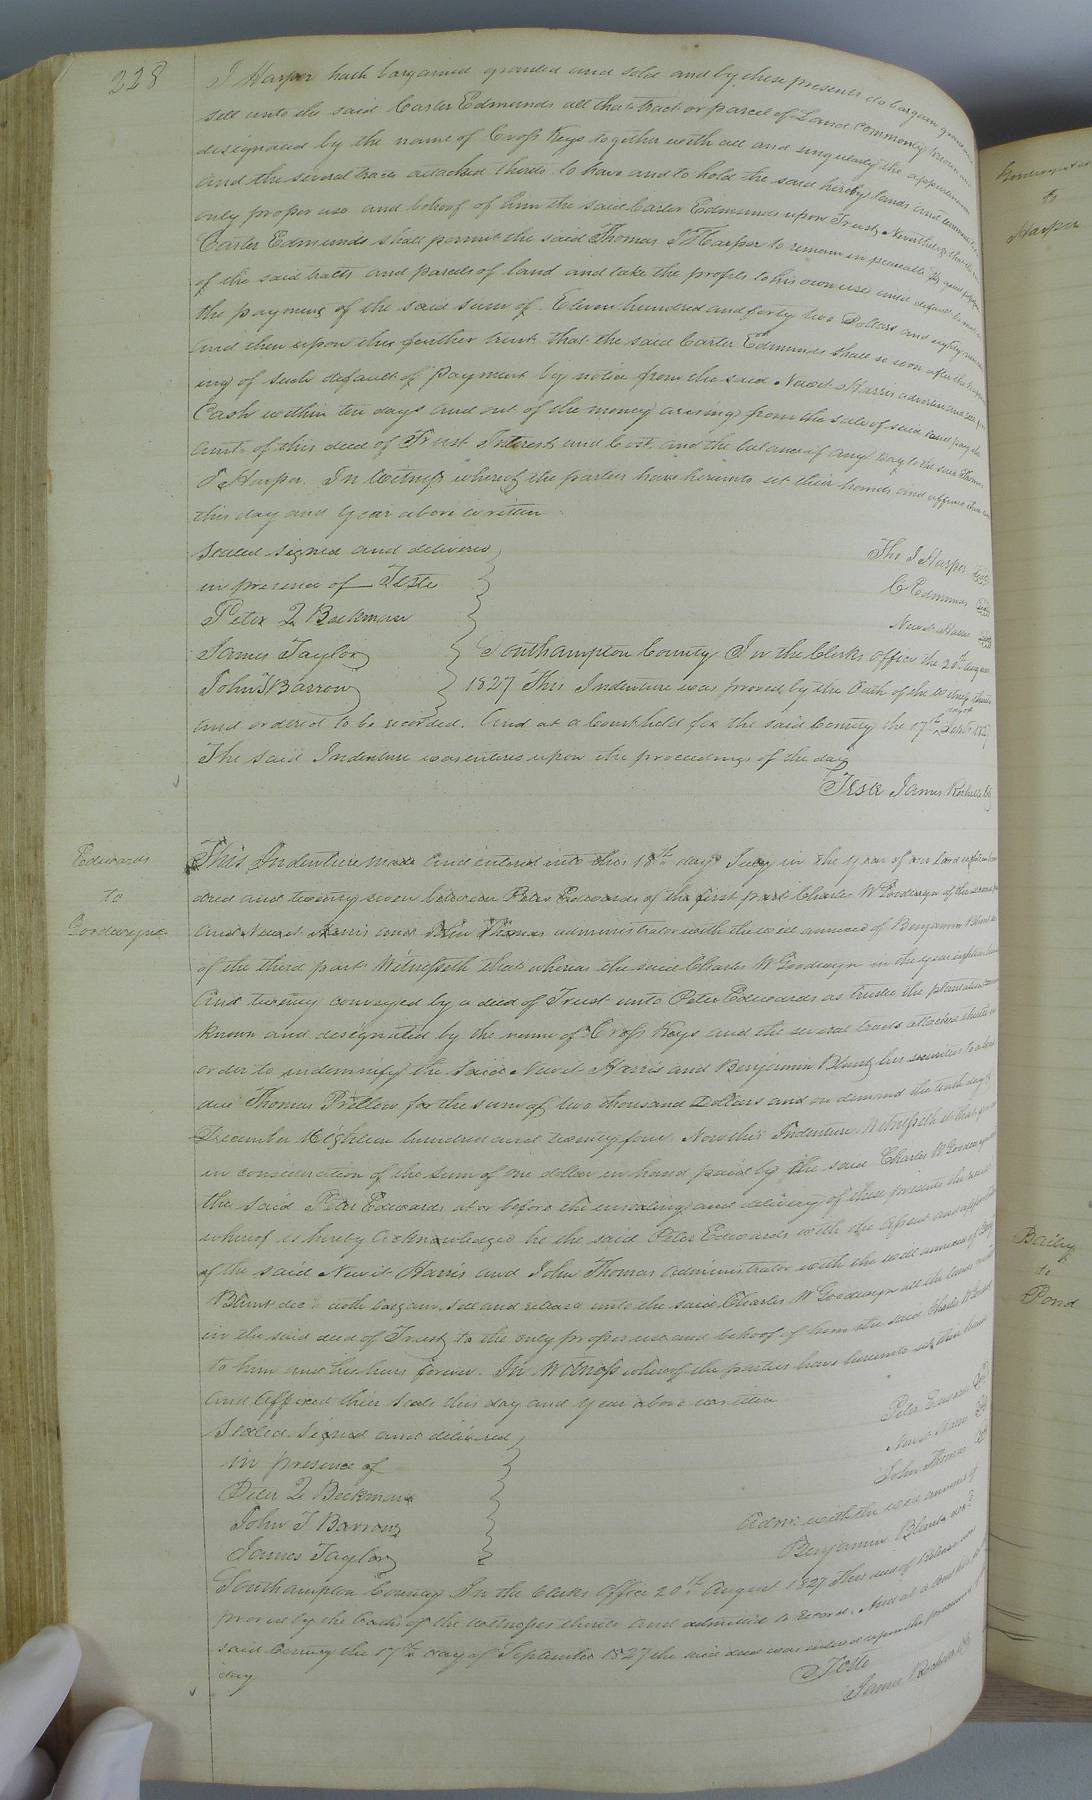 228
J Harper hath bargained granted and sold and by these presents do bargain grant and
sell unto the said Carter Edmunds all that tract or parcel of Land commonly known and
designated by the name of Cross Keys together with all and singularly the appurtenances
and the several tracts attached thereto to have and to hold the said hereby lands and
only proper use and behoof of him the said Carter Edmunds upon Trust Nevertheless that the said
Carter Edmunds shall permit the said Thomas J Harper to remain in peaceable
of the said tracts and parcels of land and take the profits to his own use until default be made in
the payment of the said sum of Eleven hundred and forty two Dollars and eighty
and then upon this further trust that the said Carter Edmunds shall so soon after the
ing of such default of payment by notice from the said Newit Harris advertise and sell for
Cash within ten days and out of the money arising from the sale of said land pay the
amt of this deed of Trust Interest and Cost and the balance if any pay to the said Thomas
J Harper. In Witness whereof the parties have hereunto set their hands and affixed their seals
this day and year above written
Sealed signed and delivered
in presence of Teste
Peter Q Beckman
James Taylor
John T Barrow
Tho J Harper
C Edmunds
Newit Harris
Southampton County In the Clerks office the 20th August
1827 This Indenture was proved by the Oath of the Witnesses thereto
and ordered to be recorded. And at a Court held for the said County the 17th day of Sept 1827
The said Indenture was entered upon the proceedings of the day
Teste James Rochelle Clk
Edwards
to
Goodwyn
This Indenture made and entered into this 18th day July in the year of our Lord eighteen hun
dred and twenty seven between Peter Edwards of the first part Charles W Goodwyn of the second part
and Newit Harris and John Thomas administrator with the will annexed of Benjamin Blunt
of the third part Witnesseth that whereas the said Charles W Goodwyn in the year eighteen hundred
and twenty conveyed by a deed of Trust unto Peter Edwards as trustee the plantation
known and designated by the name of Cross Keys and the several tracts attached thereto in
order to indemnify the said Newit Harris and Benjamin Blunt his securities to a bond
due Thomas Pretlow for the sum of two thousand Dollars and on demand the tenth day of
December Eighteen hundred and twenty four. Now this Indenture Witnesseth that for and
in consideration of the sum of one dollar in hand paid by the said Charles W Goodwyn
the said Peter Edwards at or before the ensealing and delivery of these presents the receipt
whereof is hereby acknowledged he the said Peter Edwards with the assent and approbation
of the said Newit Harris and John Thomas administrator with the will annexed of Benj
Blunt decd doth bargain sell and release unto the said Charles W Goodwyn all the lands
in the said deed of Trust to the only proper use and behoof of him the said Charles W Goodwyn
to him and his heirs forever. In Witness whereof the parties have hereunto set their hands
and affixed their seals this day and year above written
Sealed Signed and delivered
in presence of
Peter Q Beckman
John T Barrow
James Taylor
Peter Edwards
Newit Harris
John Thomas
Adm with the will annexed of
Benjamin Blunt decd
Southampton County In the Clerks Office 20th August 1827 This deed of Release was
proved by the Oaths of the witnesses thereto and admitted to record. And at a Court held for the
said County the 17th day of September 1827 the said deed was entered upon the proceedings of the
day
Teste
James Rochelle Clk
to
Harper
Bailey
to
Pond